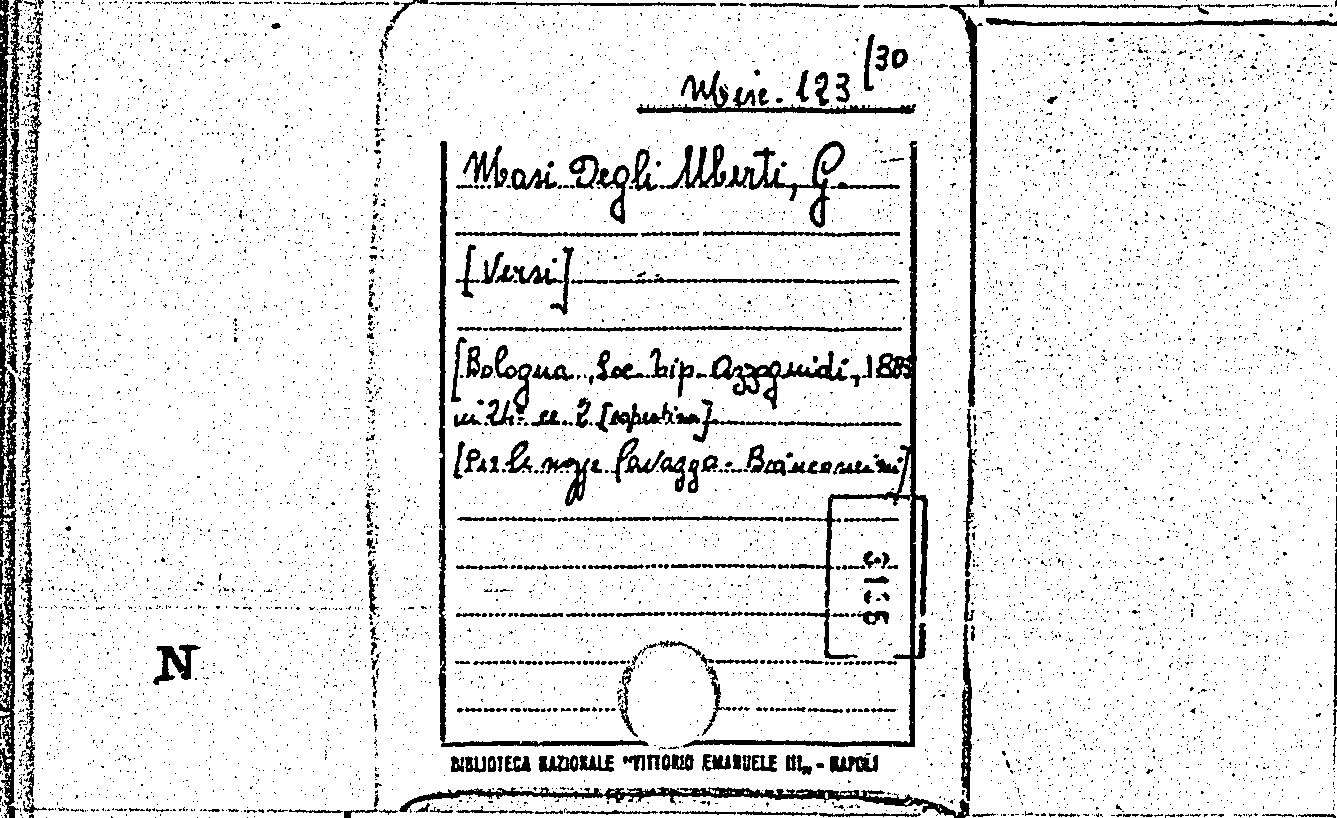 Misc. 123 /30
Masi Degli Uberti, G.
[Versi]
[Bologna, Soc. tip. Azzoguidi, 1885
in 24° cc. 2 [copertina]
[Per le nozze Cavazza - Bianconcini]
N
BIBLIOTECA NAZIONALE "VITTORIO EMANUELE III„ - NAPOLI